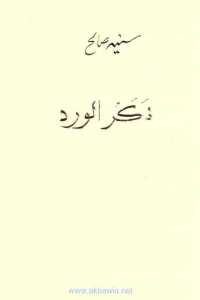 سنية صالح
ذَكَر الورد
www.akbawia.net